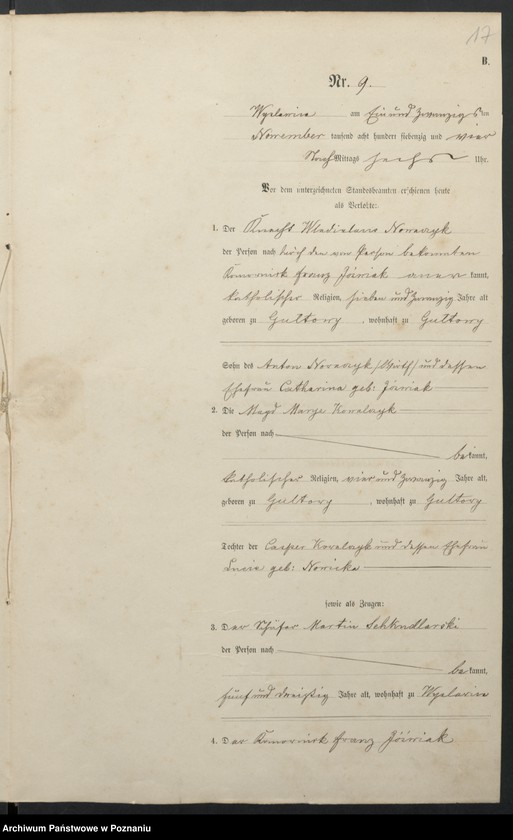 17
B.
Nr. 9.
Wyelawice am Ein und Zwanzigsten
November tausend acht hundert siebenzig und vier
Nach Mittags sechs Uhr.
Vor dem unterzeichneten Standesbeamten erschienen heute
als Verlobte:
1. Der Knecht Wladislaus Nowaczyk
der Person nach durch den von Person bekannten
Komornick Franz Jóźwiak aner kannt,
katholischer Religion, sieben und zwanzig Jahre alt
geboren zu Gultowy, wohnhaft zu Gultowy
Sohn des Anton Nowaczyk und dessen
Ehefrau Catharina geb: Jóźwiak
2. Die Magd Marye Kowalczyk
der Person nach
bekannt,
katholischer Religion, vier und zwanzig Jahre alt,
geboren zu Gultowy, wohnhaft zu Gultowy
Tochter der Casper Kowalczyk und dessen Ehefrau
Lucia geb: Nowicka
sowie als Zeugen:
3. Der Schäfer Martin
der Person nach
bekannt,
fünf und dreißig Jahre alt, wohnhaft zu Wyelawice
4. Der Komornick Franz Jóźwiak
Archiwum Państwowe w Poznaniu
Archiwum Państwowe w Poznaniu